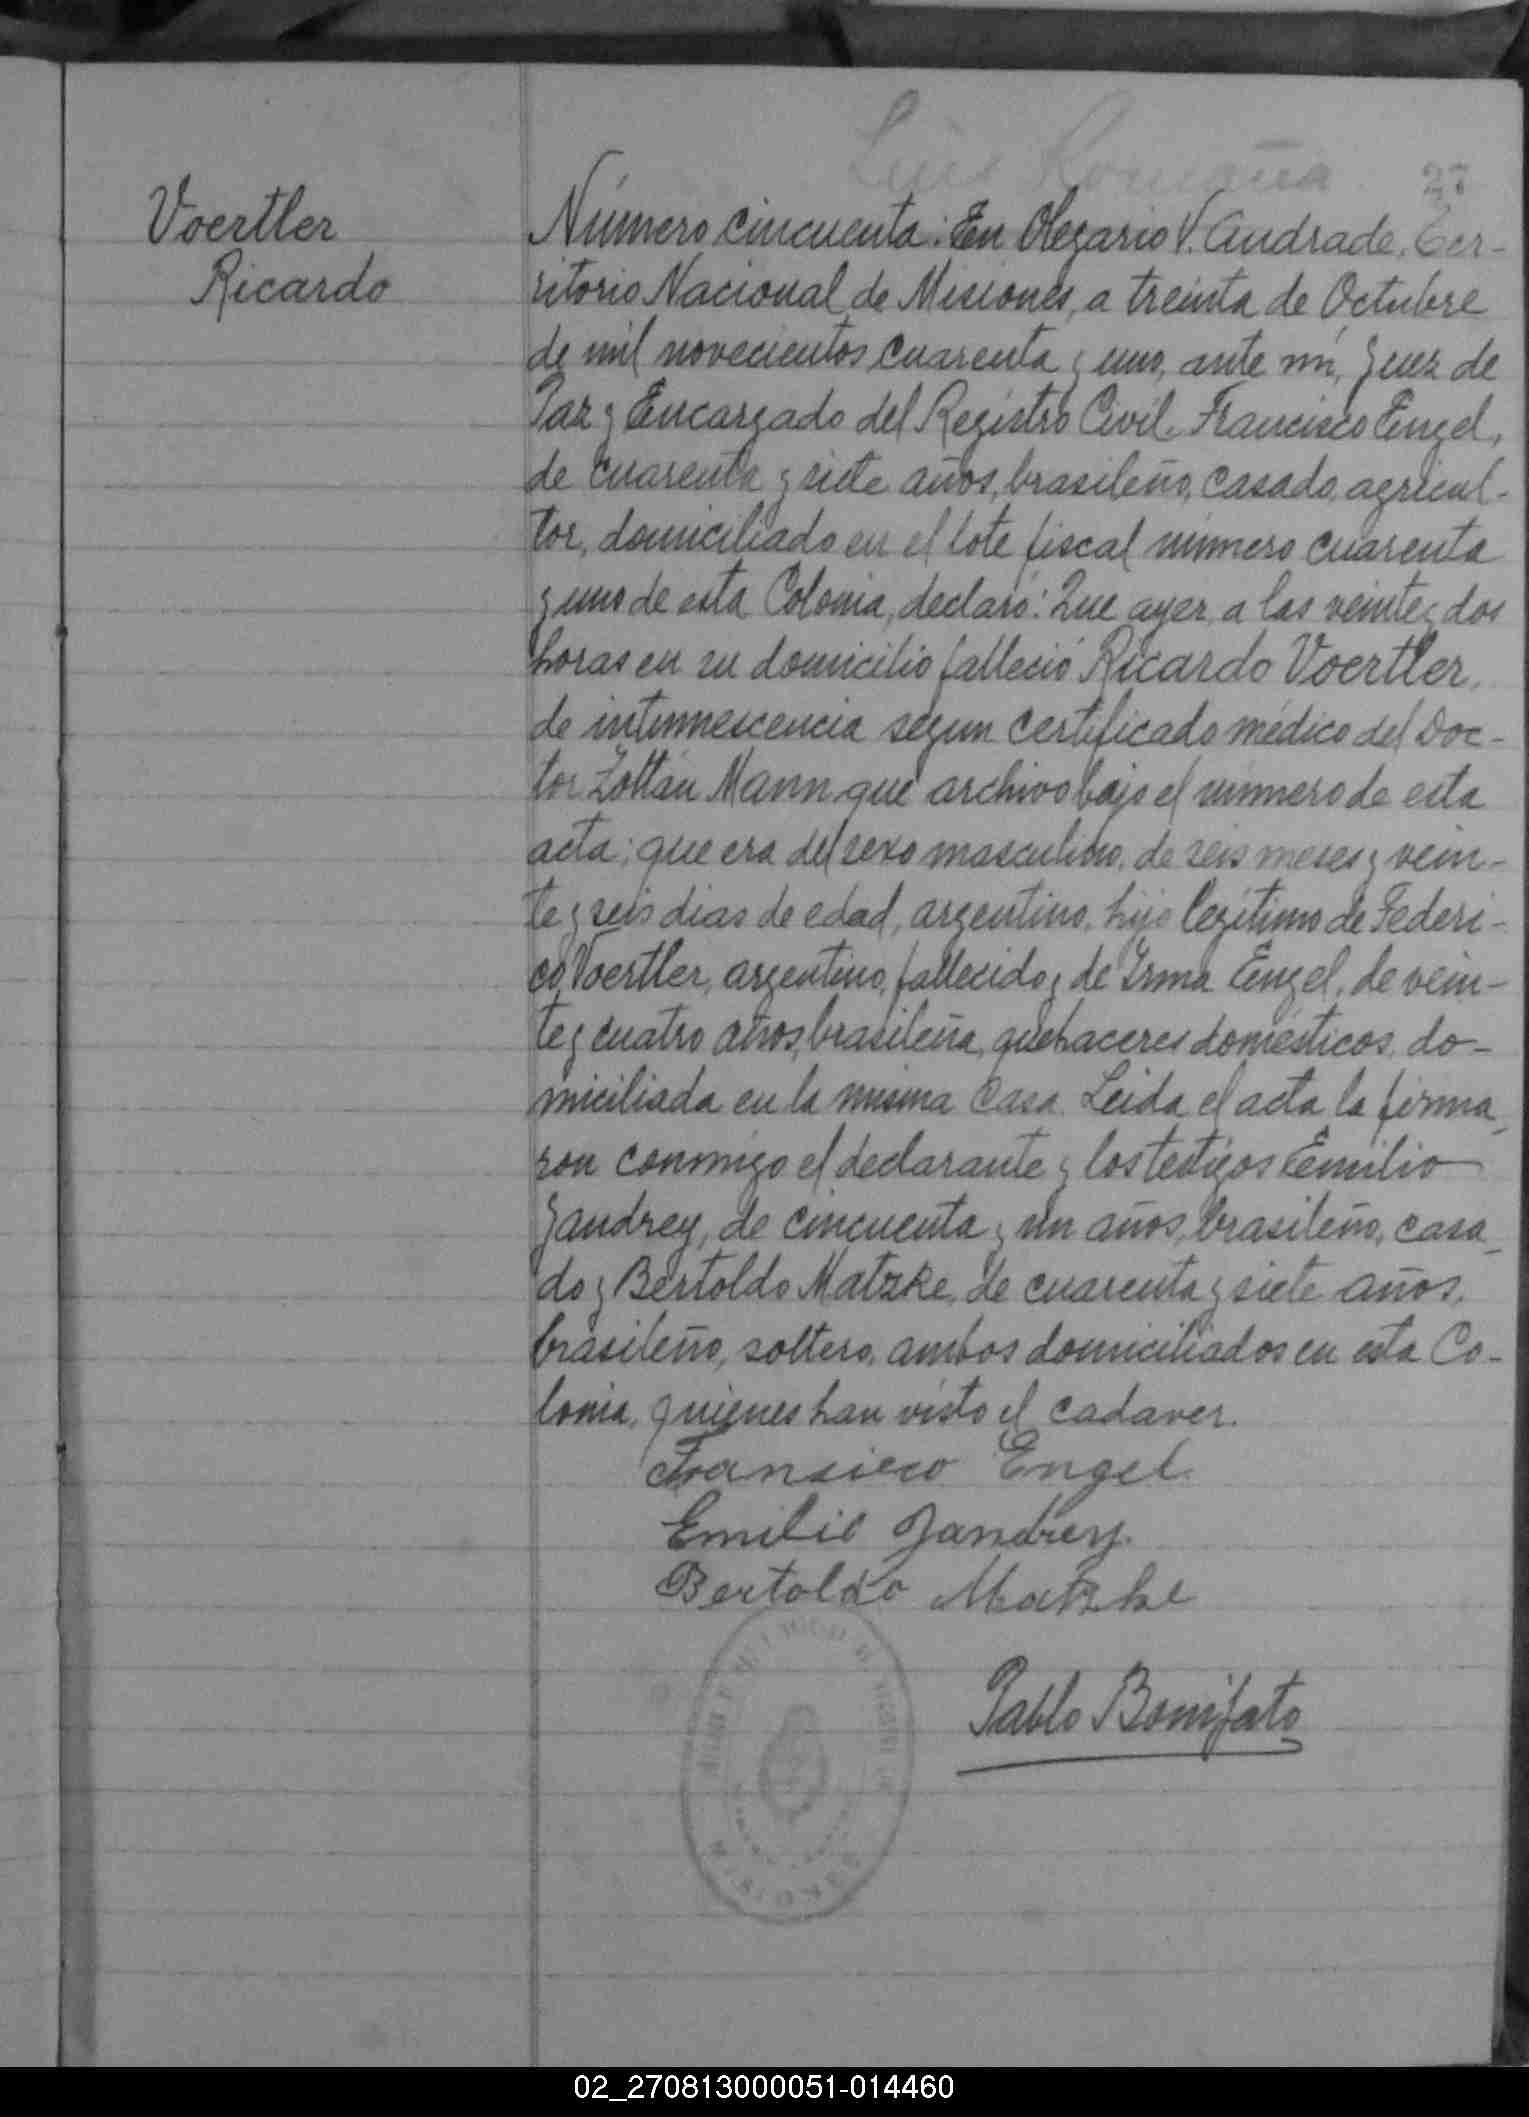 Luis Romaña
27
Voertler
Ricardo
Número cincuenta: En Olegario V. Andrade, Ter-
ritorio Nacional de Misiones, a treinta de Octubre
de mil novecientos cuarenta y uno, ante mí, Juez de
Paz y Encargado del Registro Civil, Francisco Engel,
de cuarenta y siete años, brasileño, casado, agricul-
tor, domiciliado en el lote fiscal número cuarenta
y uno de esta Colonia, declaró: Que ayer, a las veinte y dos
horas en su domicilio falleció Ricardo Voertler,
de intumescencia segun certificado médico del Doc-
tor Zoltán Mann que archivo bajo el número de esta
acta; que era del sexo masculino, de seis meses y vein-
te y seis dias de edad, argentino, hijo legítimo de Federi-
co Voertler, argentino, fallecido y de Irma Engel, de vein-
te y cuatro años, brasileña, quehaceres domésticos, do-
miciliada en la misma casa. Leida el acta la firma-
ron conmigo el declarante y los testigos Emilio
Jandrey, de cincuenta y un años, brasileño, casa-
do y Bertoldo Matzke, de cuarenta y siete años,
brasileño, soltero, ambos domiciliados en esta Co-
lonia, quienes han visto el cadaver.
Fransisco Engel.
Emilio Jandrey.
Bertoldo Matzke
Pablo Bonifato
02_270813000051-014460